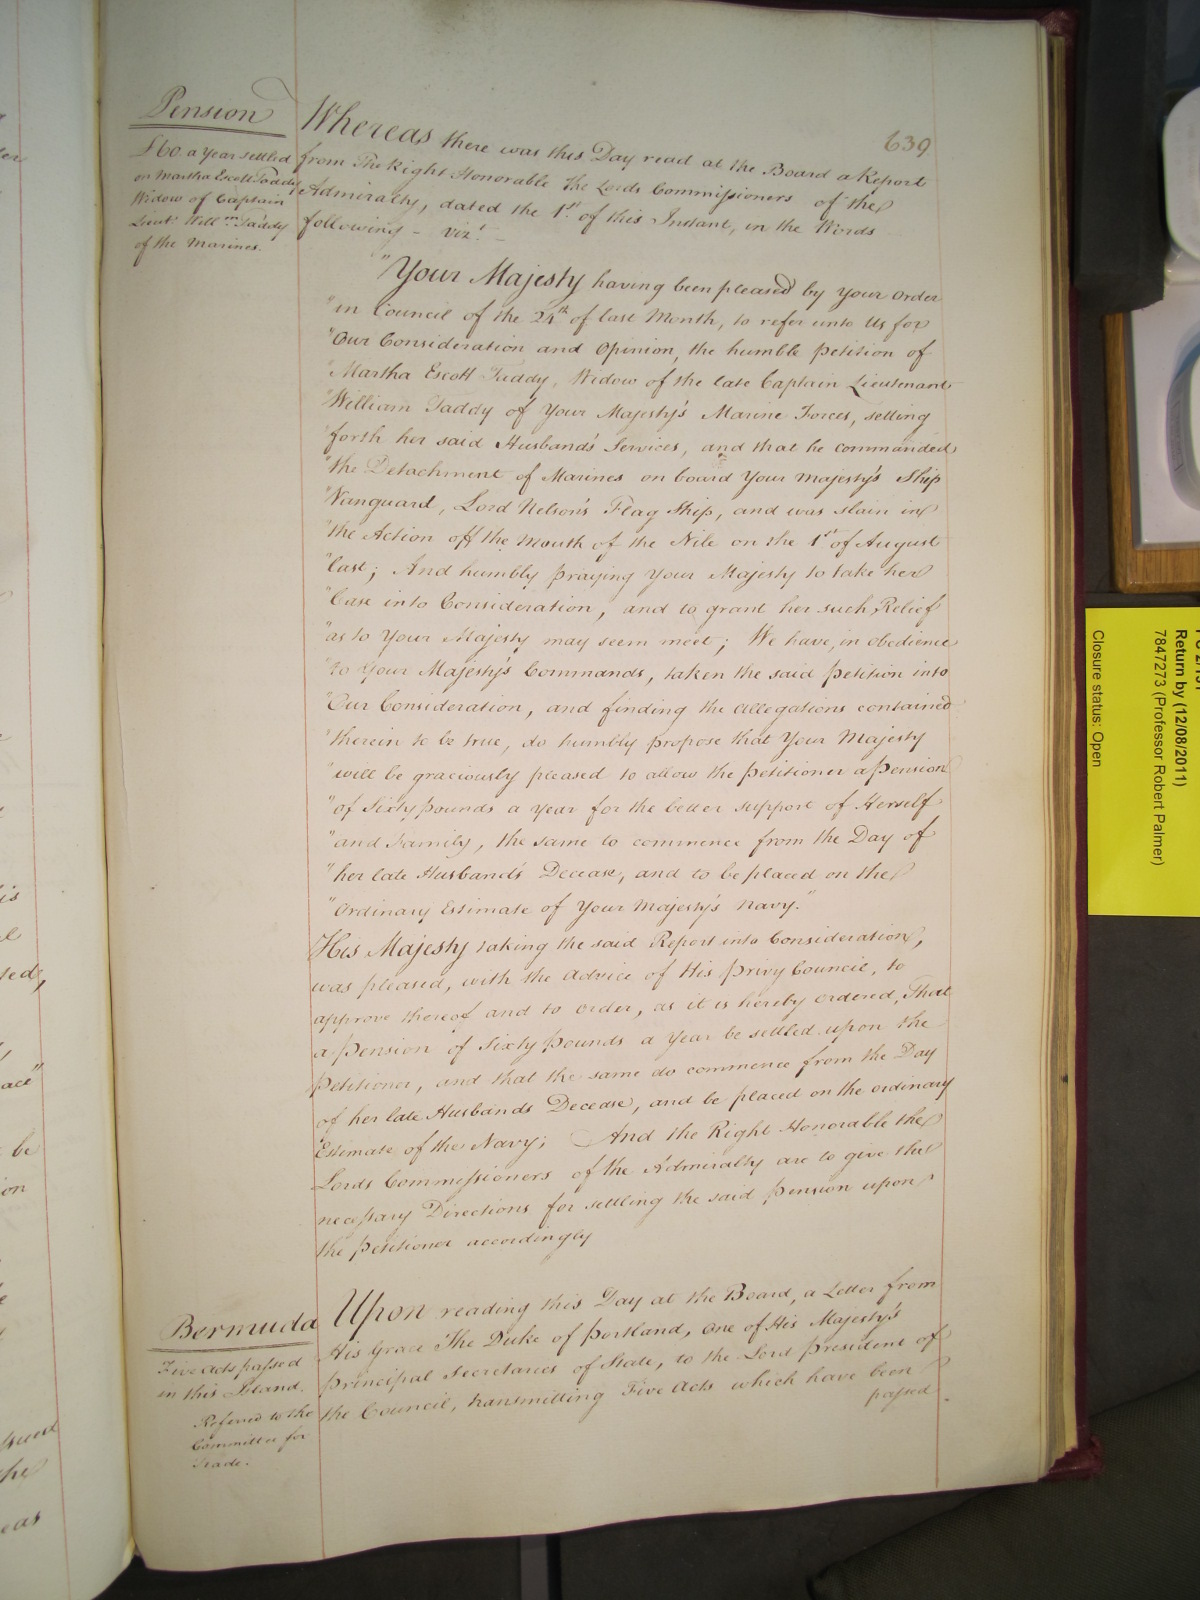 639
Pension
£60. a Year settled
on Martha Escott Taddy
Widow of Captain
Lieut. Willm. Taddy
of the Marines.
Whereas there was this Day read at the Board a Report
from The Right Honorable the Lords Commissioners of the
Admiralty, dated the 1st. of this Instant, in the Words
following - vizt. -
"Your Majesty having been pleased by Your Order
"in Council of the 24th of last Month, to refer unto Us for
"Our Consideration and Opinion, the humble Petition of
"Martha Escott Taddy, Widow of the late Captain Lieutenant
"William Taddy of Your Majesty's Marine Forces, setting
"forth her said Husband's Services, and that he commanded
"the Detachment of Marines on board Your Majesty's Ship
"Vanguard, Lord Nelson's Flag Ship, and was slain in
"the Action off the Mouth of the Nile on the 1st of August
"last; And humbly praying Your Majesty to take her
"Case into Consideration, and to grant her such Relief
"as to Your Majesty may seem meet; We have, in obedience
"to Your Majesty's Commands, taken the said Petition into
"Our Consideration, and finding the allegations contained
"therein to be true, do humbly propose that Your Majesty
"will be graciously pleased to allow the Petitioner a Pension
"of Sixty Pounds a Year for the better support of Herself
"and Family, the same to commence from the Day of
"her late Husband's Decease, and to be placed on the
"Ordinary Estimate of Your Majesty's Navy."
His Majesty taking the said Report into Consideration,
was pleased, with the advice of His Privy Council, to
approve thereof and to order, as it is hereby ordered, That
a Pension of Sixty Pounds a Year be settled upon the
Petitioner, and that the same do commence from the Day
of her late Husbands Decease, and be placed on the ordinary
Estimate of the Navy; And the Right Honorable the
Lords Commissioners of the Admiralty are to give the
necessary Directions for settling the said Pension upon
the Petitioner accordingly
Bermuda
Five Acts passed
in this Island.
Referred to the
Committee for
Trade.
Upon reading this Day at the Board, a Letter from
His Grace The Duke of Portland, One of His Majesty's
Principal Secretaries of State, to the Lord President of
the Council, transmitting Five Acts which have been
passed
Return by (12/08/2011)
7847273 (Professor Robert Palmer)
Closure status: Open